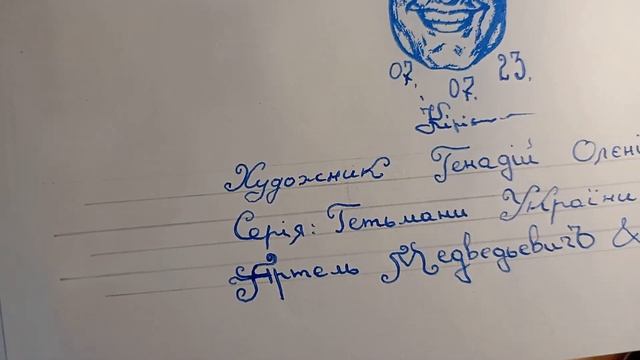 07.
07. 23.
Художник Генадій
Серія: Гетьмани України
Артель МедведьевичЪ &